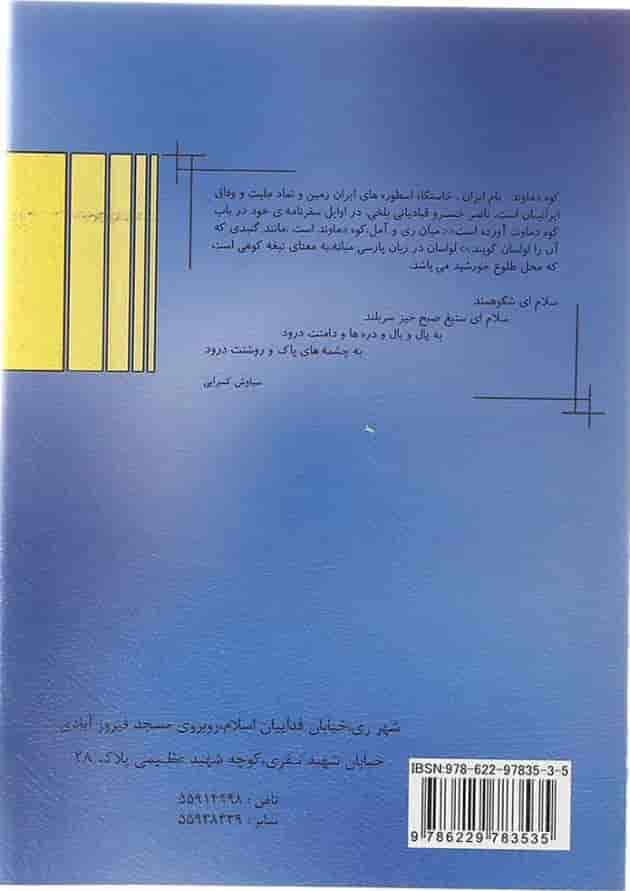 کوه دماوند بام ایران ، خاستگاه اسطوره های ایران زمین و نماد ملیت و وفاق
ایرانیان است. ناصر خسرو قبادیانی بلخی، در اوایل سفرنامه ی خود در باب
کوه دماوند آورده است<< میان ری و آمل،کوه دماوند است ،مانند گنبدی که
آن را لواسان گویند.>> لواسان در زبان پارسی میانه،به معنای تیغه کوهی است،
که محل طلوع خورشید می باشد.
سلام ای شکوهمند
سلام ای ستیغ صبح خیز سربلند
به یال و بال و دره ها و دامنت درود
به چشمه های پاک و روشنت درود
سیاوش کسرایی
شهر ری،خیابان فداییان اسلام،روبروی مسجد فیروز آبادی
خیابان شهید کوچه شهید عظیمی پلاک ۲۸
تلفن :
نمابر :
ISBN:978-622-97835-3-5
9 786229 783535